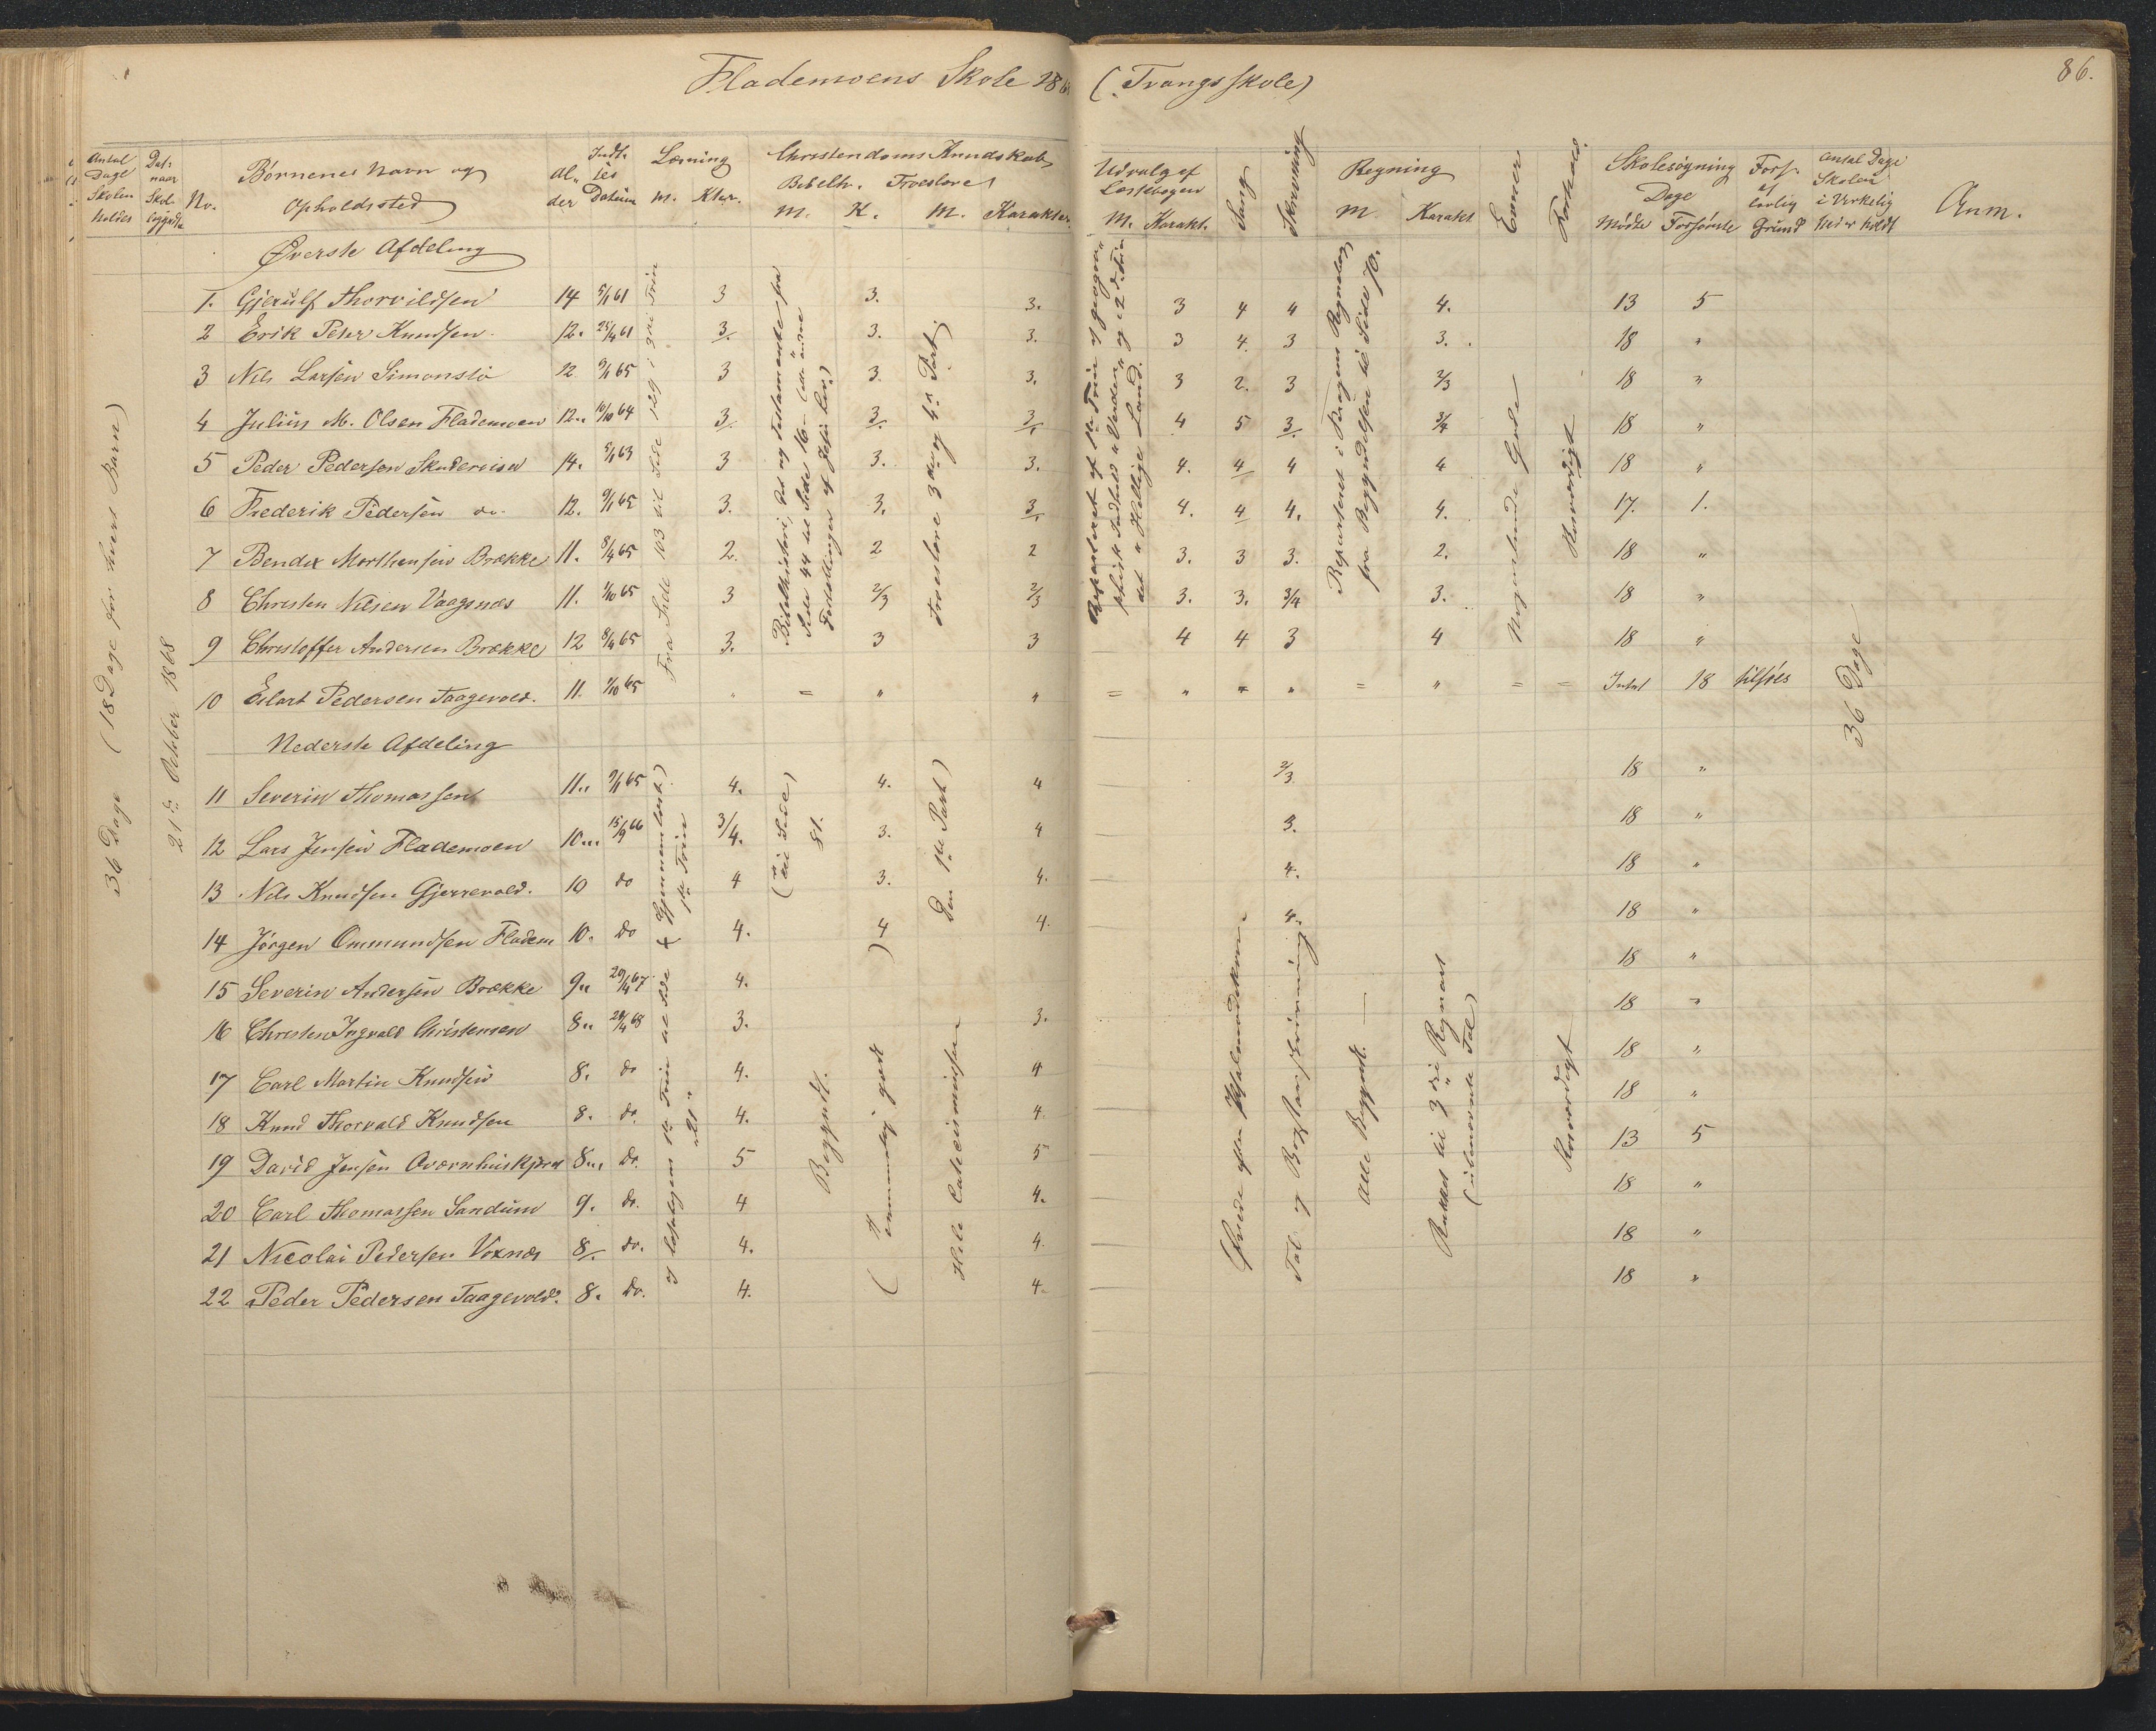 Flademoens Skole 186 (Tvangsskole)
86.
Antal Dage Skolen holdes
Dat. naar Skol. begyndte
No.
Børnenes Navn og Opholdssted
Alder
Indt. Datum
Læsning M. Kter.
Christendoms Kundskab
Bibelh. M. K.
Troeslære M. Karakter
Udvalg af Læsebogen M. Karakt.
Sang
Skrivning
Regning M. Karakt
Evner
Forhold
Skolesøgning Dage Mødte Forsømte
Fors. af lovlig Grund
Antal Dage Skolen i Virkelig hed er holdt
Anm.
36 Dage (18 Dage for hvert Barn)
21de October 1868
Øverste Afdeling
1. Gjerulf Thorvildsen 14 5/1 61 3 3. 3. 3 4 4 4. 13 5
2 Erik Peter Knudsen 12. 25/4 61 3. 3. 3. 3 4. 3 3. 18 "
3 Nils Larsen Simonslø 12 9/1 65 3 3. 3. 3 2. 3 2/3 18 "
4 Julius M. Olsen Flademoen 12.. 10/10 64 3. 3. 3. 4 5 3. 3/4 18 "
5 Peder Pedersen 14. 5/1 63 3 3. 3. 4. 4 4 4 18 "
6 Frederik Pedersen do. 12. 9/1 65 3. 3. 3. 4. 4 4. 4. 17. 1.
7 Bendix Morthensen Brække 11. 8/4 65 2. 2 2 3. 3 3. 2. 18 "
8 Christen Nilsen Vaagsnæs 11. 1/10 65 3 2/3 2/3 3. 3. 3/4 3. 18 "
9 Christoffer Andersen Brække 12 8/4 65 3. 3 3 4 4 3 4 18 "
10 Eilart Pedersen Taagevold. 11. 1/10 65 " = " " = " " " = " = = Intet 18 tilføies
Fra Side 103 til Side 129 i 3die Trin
Bibelhistori, det ny Testamente fra
Side 44 til Side 76 - (
Fortællinger af Jesu Liv)
Troeslære 3die og 4de Part
Reparteret af 1ste Trin af geogra-
phisk Indhold "Verden" og i 2det Trin
det "Hellige Land."
Reparteret i Kragens Regnebog
fra Begyndelsen til Side 70.
Nogenlunde Gode
Rosværdigt
36 Dage
Nederste Afdeling
11 Severin Thomassen 11.. 9/1 65 4. 4. 4 2/3 18 "
12 Lars Jensen Flademoen 10... 15/9 66 3/4. 3. 4 3. 18 "
13 Nils Knudsen Gjerrevold. 10 do 4 3. 4. 4. 18 "
14 Jørgen Ommundsen Fladem 10. do 4. 4 4. 4. 18 "
15 Severin Andersen Brække 9.. 29/4 67 4. 18 "
16 Christen Ingvald Christensen 8.. 28/4 68 3. 3. 18 "
17 Carl Martin Knudsen 8. do 4. 4 18 "
18 Knud Thorvald Knudsen 8. do. 4. 4. 18 "
19 David Jensen Qværnhuskjær 8... do. 5 5 13 5
20 Carl Thomassen Sandum 9. do. 4 4. 18 "
21 Nicolai Pedersen Voxnæs 8. do. 4. 4. 18 "
22 Peder Pedersen Taagevold. 8. do. 4. 4. 18 "
af Læsebogens 1ste Trin til Side "21"
(Gjennemlæst)
1ste Trin
(til Side)
81.
Den 1ste Part)
Begyndt.
(temmelig godt)
Hele Catecismissen
Øvede efter Psalmodikon
Tal og Bogstavskrivning
Alle Begyndt. —
Rukket til 3die Regneart
(ubenævnte Tal)
Rosværdigt